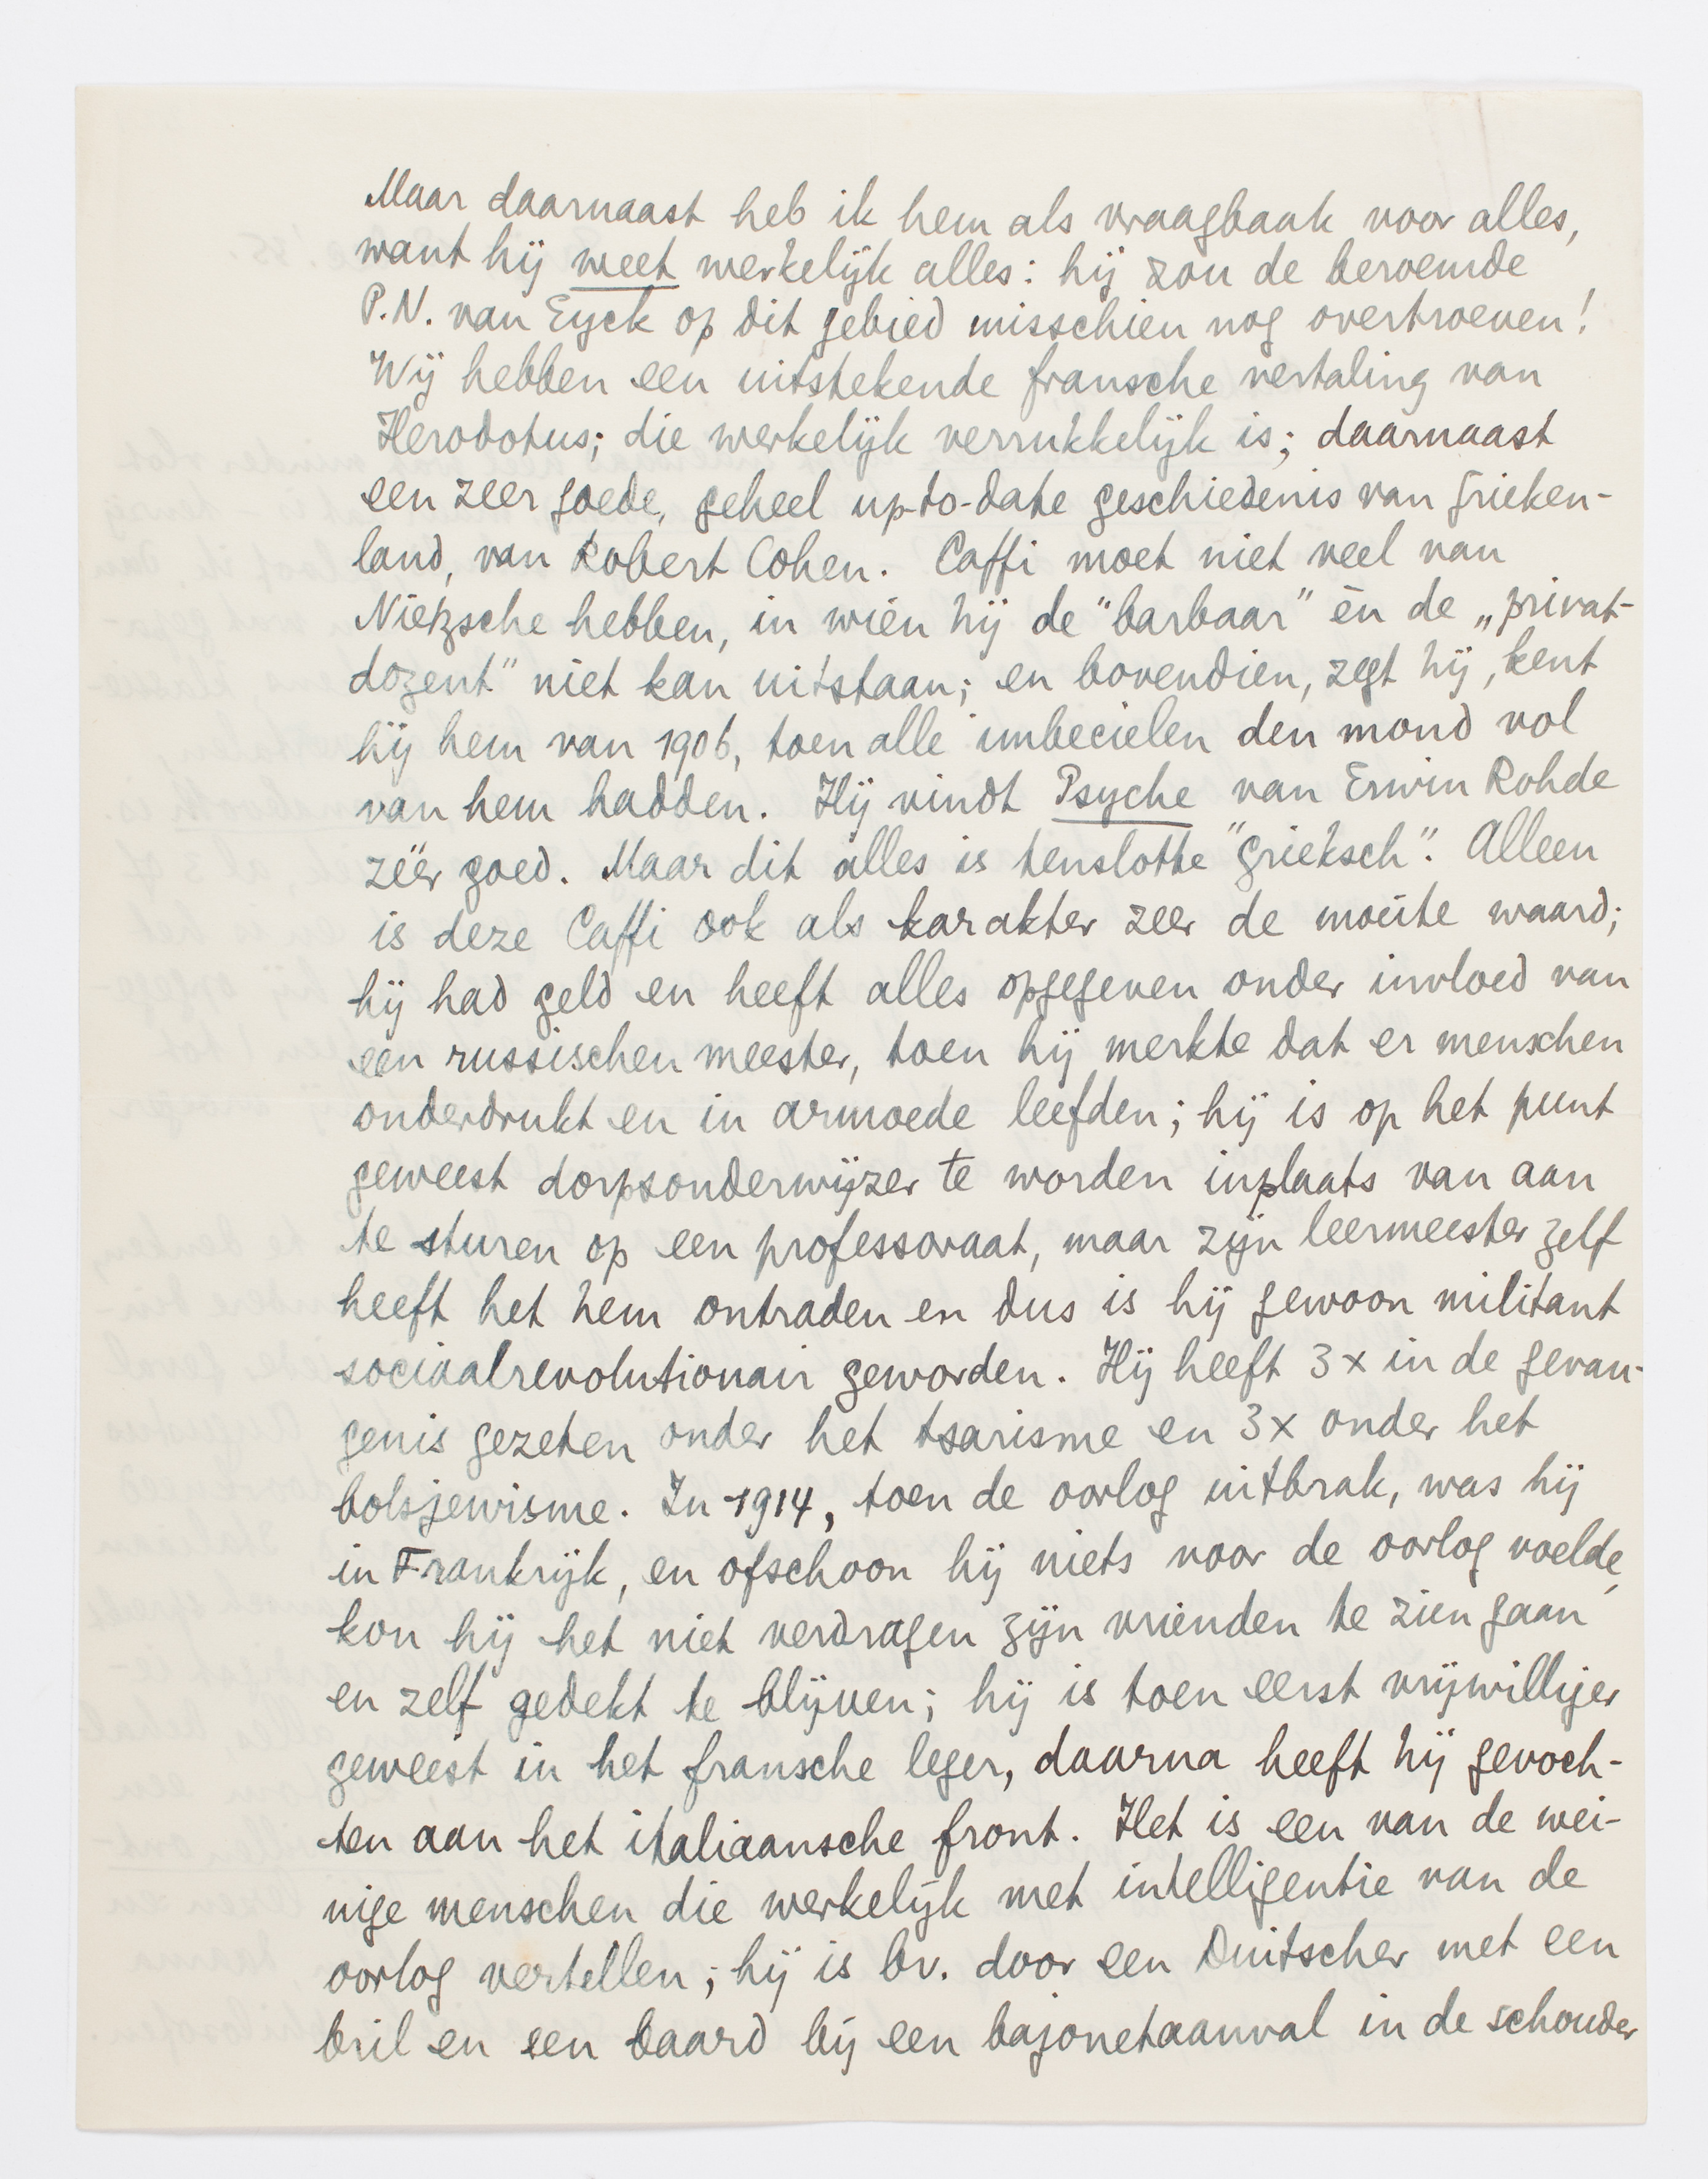 Maar daarnaast heb ik hem als vraagbaak voor alles,
want hij weet werkelijk alles: hij zou de beroemde
P.N. van Eyck op dit gebied misschien nog overtroeven!
Wij hebben een uitstekende fransche vertaling van
Herodotus; die werkelijk verrukkelijk is; daarnaast
een zeer goede, geheel up-to-date geschiedenis van Grieken-
land, van Robert Cohen. Caffi moet niet veel van
Nietzsche hebben, in wien hij de "barbaar" én de „privat-
dozent" niet kan uitstaan; en bovendien, zegt hij, kent
hij hem van 1906, toen alle imbecielen den mond vol
van hem hadden. Hij vindt Psyche van Erwin Rohde
zéér goed. Maar dit alles is tenslotte "grieksch". Alleen
is deze Caffi ook als karakter zeer de moeite waard;
hij had geld en heeft alles opgegeven onder invloed van
een russischen meester, toen hij merkte dat er menschen
onderdrukt en in armoede leefden; hij is op het punt
geweest dorpsonderwijzer te worden inplaats van aan
te sturen op een professoraat, maar zijn leermeester zelf
heeft het hem ontraden en dus is hij gewoon militant
sociaalrevolutionair geworden. Hij heeft 3x in de gevan-
genis gezeten onder het tsarisme en 3x onder het
bolsjewisme. In 1914, toen de oorlog uitbrak, was hij
in Frankrijk, en ofschoon hij niets voor de oorlog voelde,
kon hij het niet verdragen zijn vrienden te zien gaan
en zelf gedekt te blijven; hij is toen eerst vrijwilliger
geweest in het fransche leger, daarna heeft hij gevoch-
ten aan het italiaansche front. Het is een van de wei-
nige menschen die werkelijk met intelligentie van de
oorlog vertellen; hij is bv. door een Duitscher met een
bril en een baard bij een bajonetaanval in de schouder